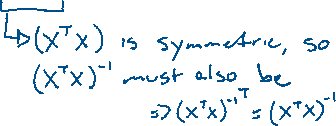 (XᵀX) is symmetric, so
(XᵀX)⁻¹ must also be
⇒ (XᵀX)⁻¹ᵀ = (XᵀX)⁻¹